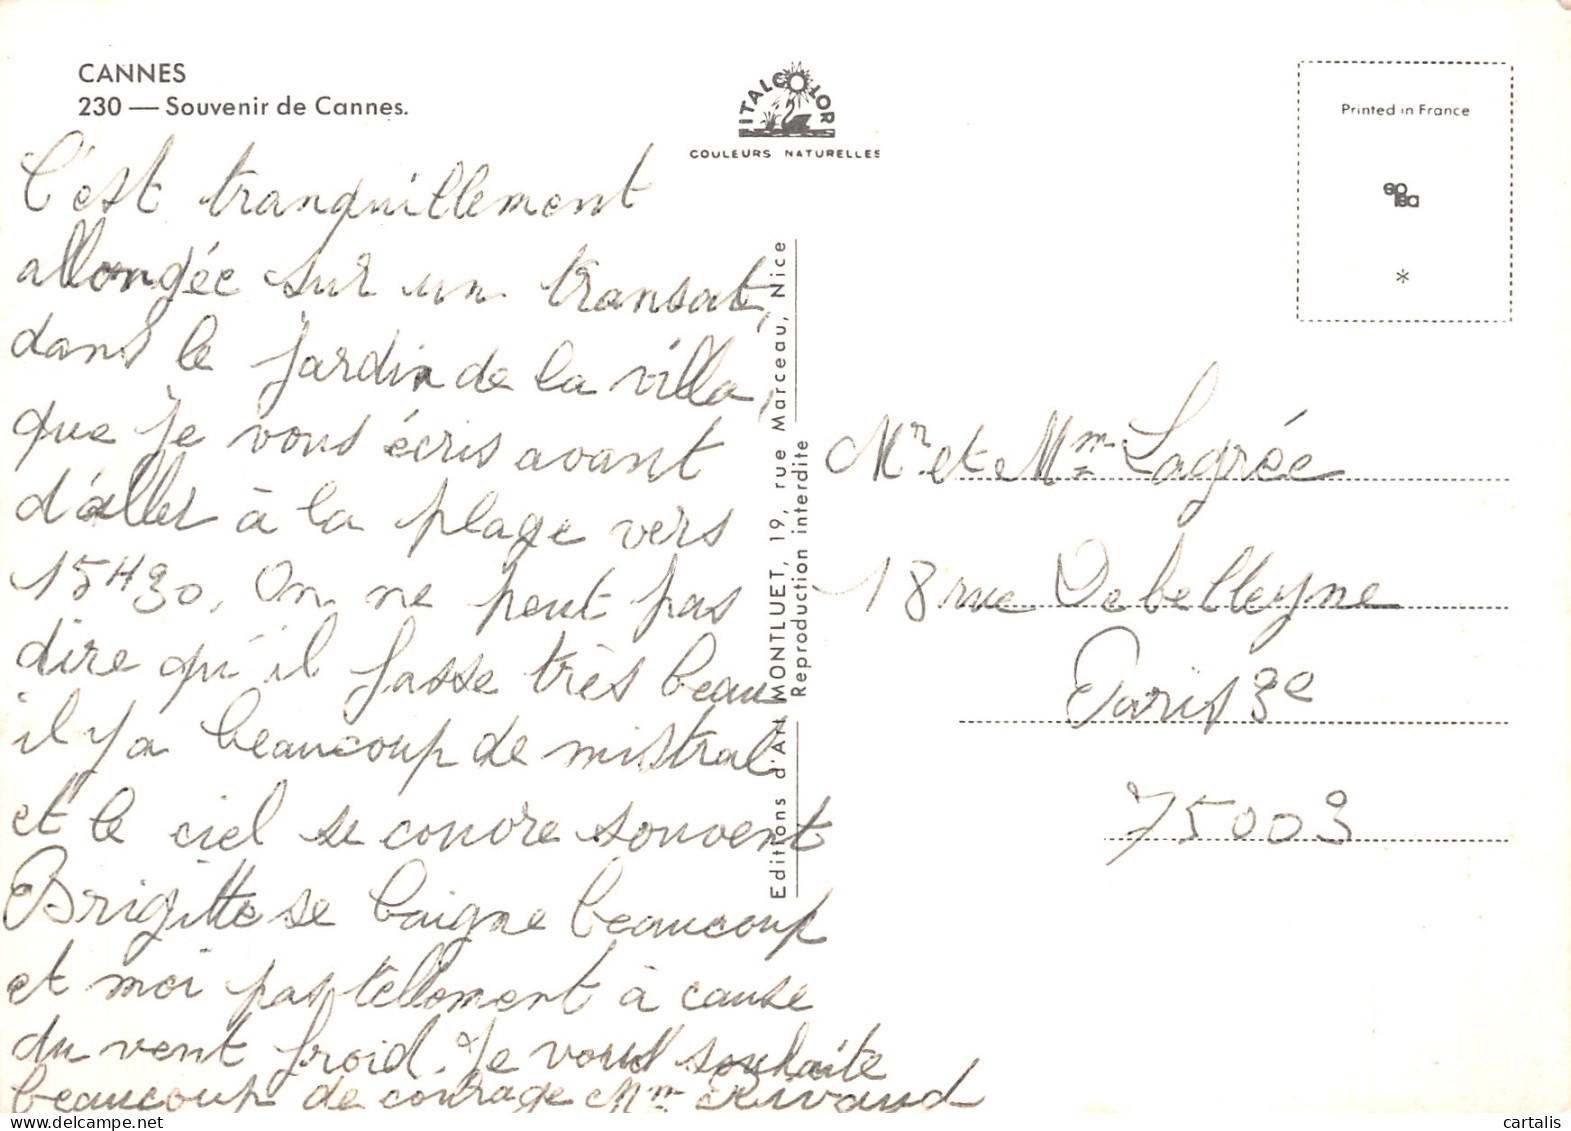 CANNES
230 — Souvenir de Cannes.
ITALCOLOR
COULEURS NATURELLES
Printed in France
*
C'est tranquillement
allongée sur un transat,
dans le jardin de la villa,
que je vous écris avant
d'aller à la plage vers
15H30. On ne peut pas
dire qu'il fasse très beau
il y a beaucoup de mistral
et le ciel se couvre souvent
Brigitte se baigne beaucoup
et moi pas tellement à cause
du vent froid. Je vous souhaite
beaucoup de courage Mm Rivaud
Editions d'Art MONTLUET, 19, rue Marceau, Nice
Reproduction interdite
Mr et Mm Lagrée
18 rue Debelleyne
Paris 3e
75003
cartalis